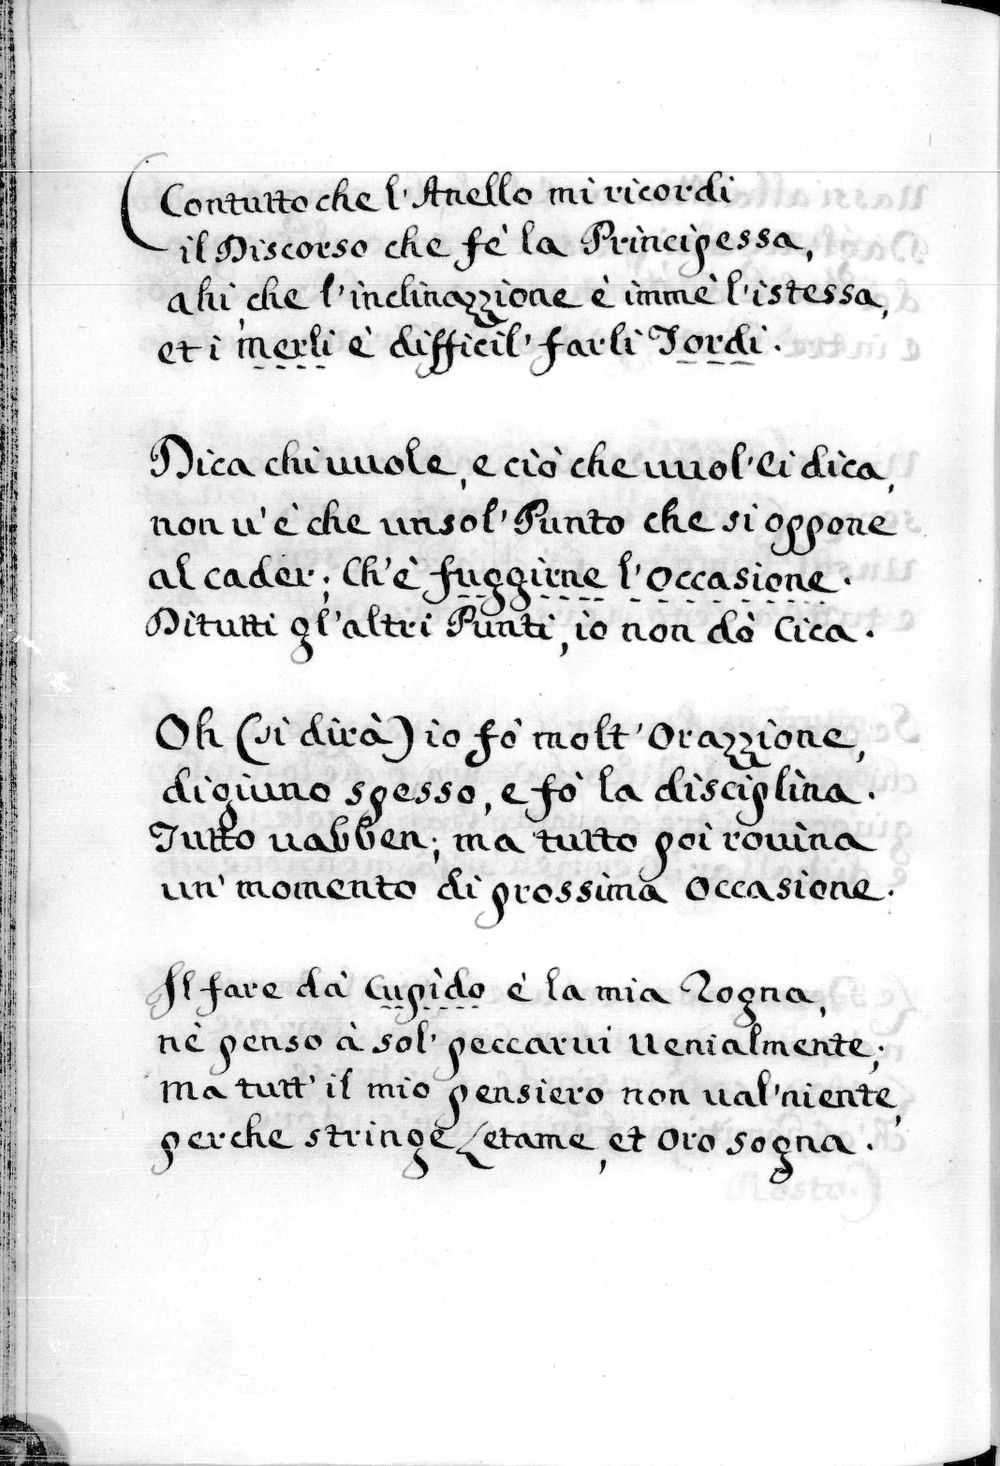 Contutto che l'Anello mi ricordi
il Discorso che fè la Principessa,
ahi, che l'inclinazzione è immè l'istessa,
et i merli è difficil' farli Tordi.
Dica chi uuole, e ciò che uuol' lei dica,
non u'è che un sol' Punto che si oppone
al cader; Ch'è fuggirne l'occasione.
Di tutti gl'altri Punti, io non dò Cica.
Oh (si dirà) io fò molt'Orazzione,
digiuno spesso, e fò la disciplina.
Tutto uabben; ma tutto poi rouina
un' momento di prossima occasione.
Il fare da Cupido è la mia Rogna,
nè penso à sol' peccarui Uenialmente;
ma tutt' il mio pensiero non ual'niente,
perche stringe Letame, et Oro sogna.